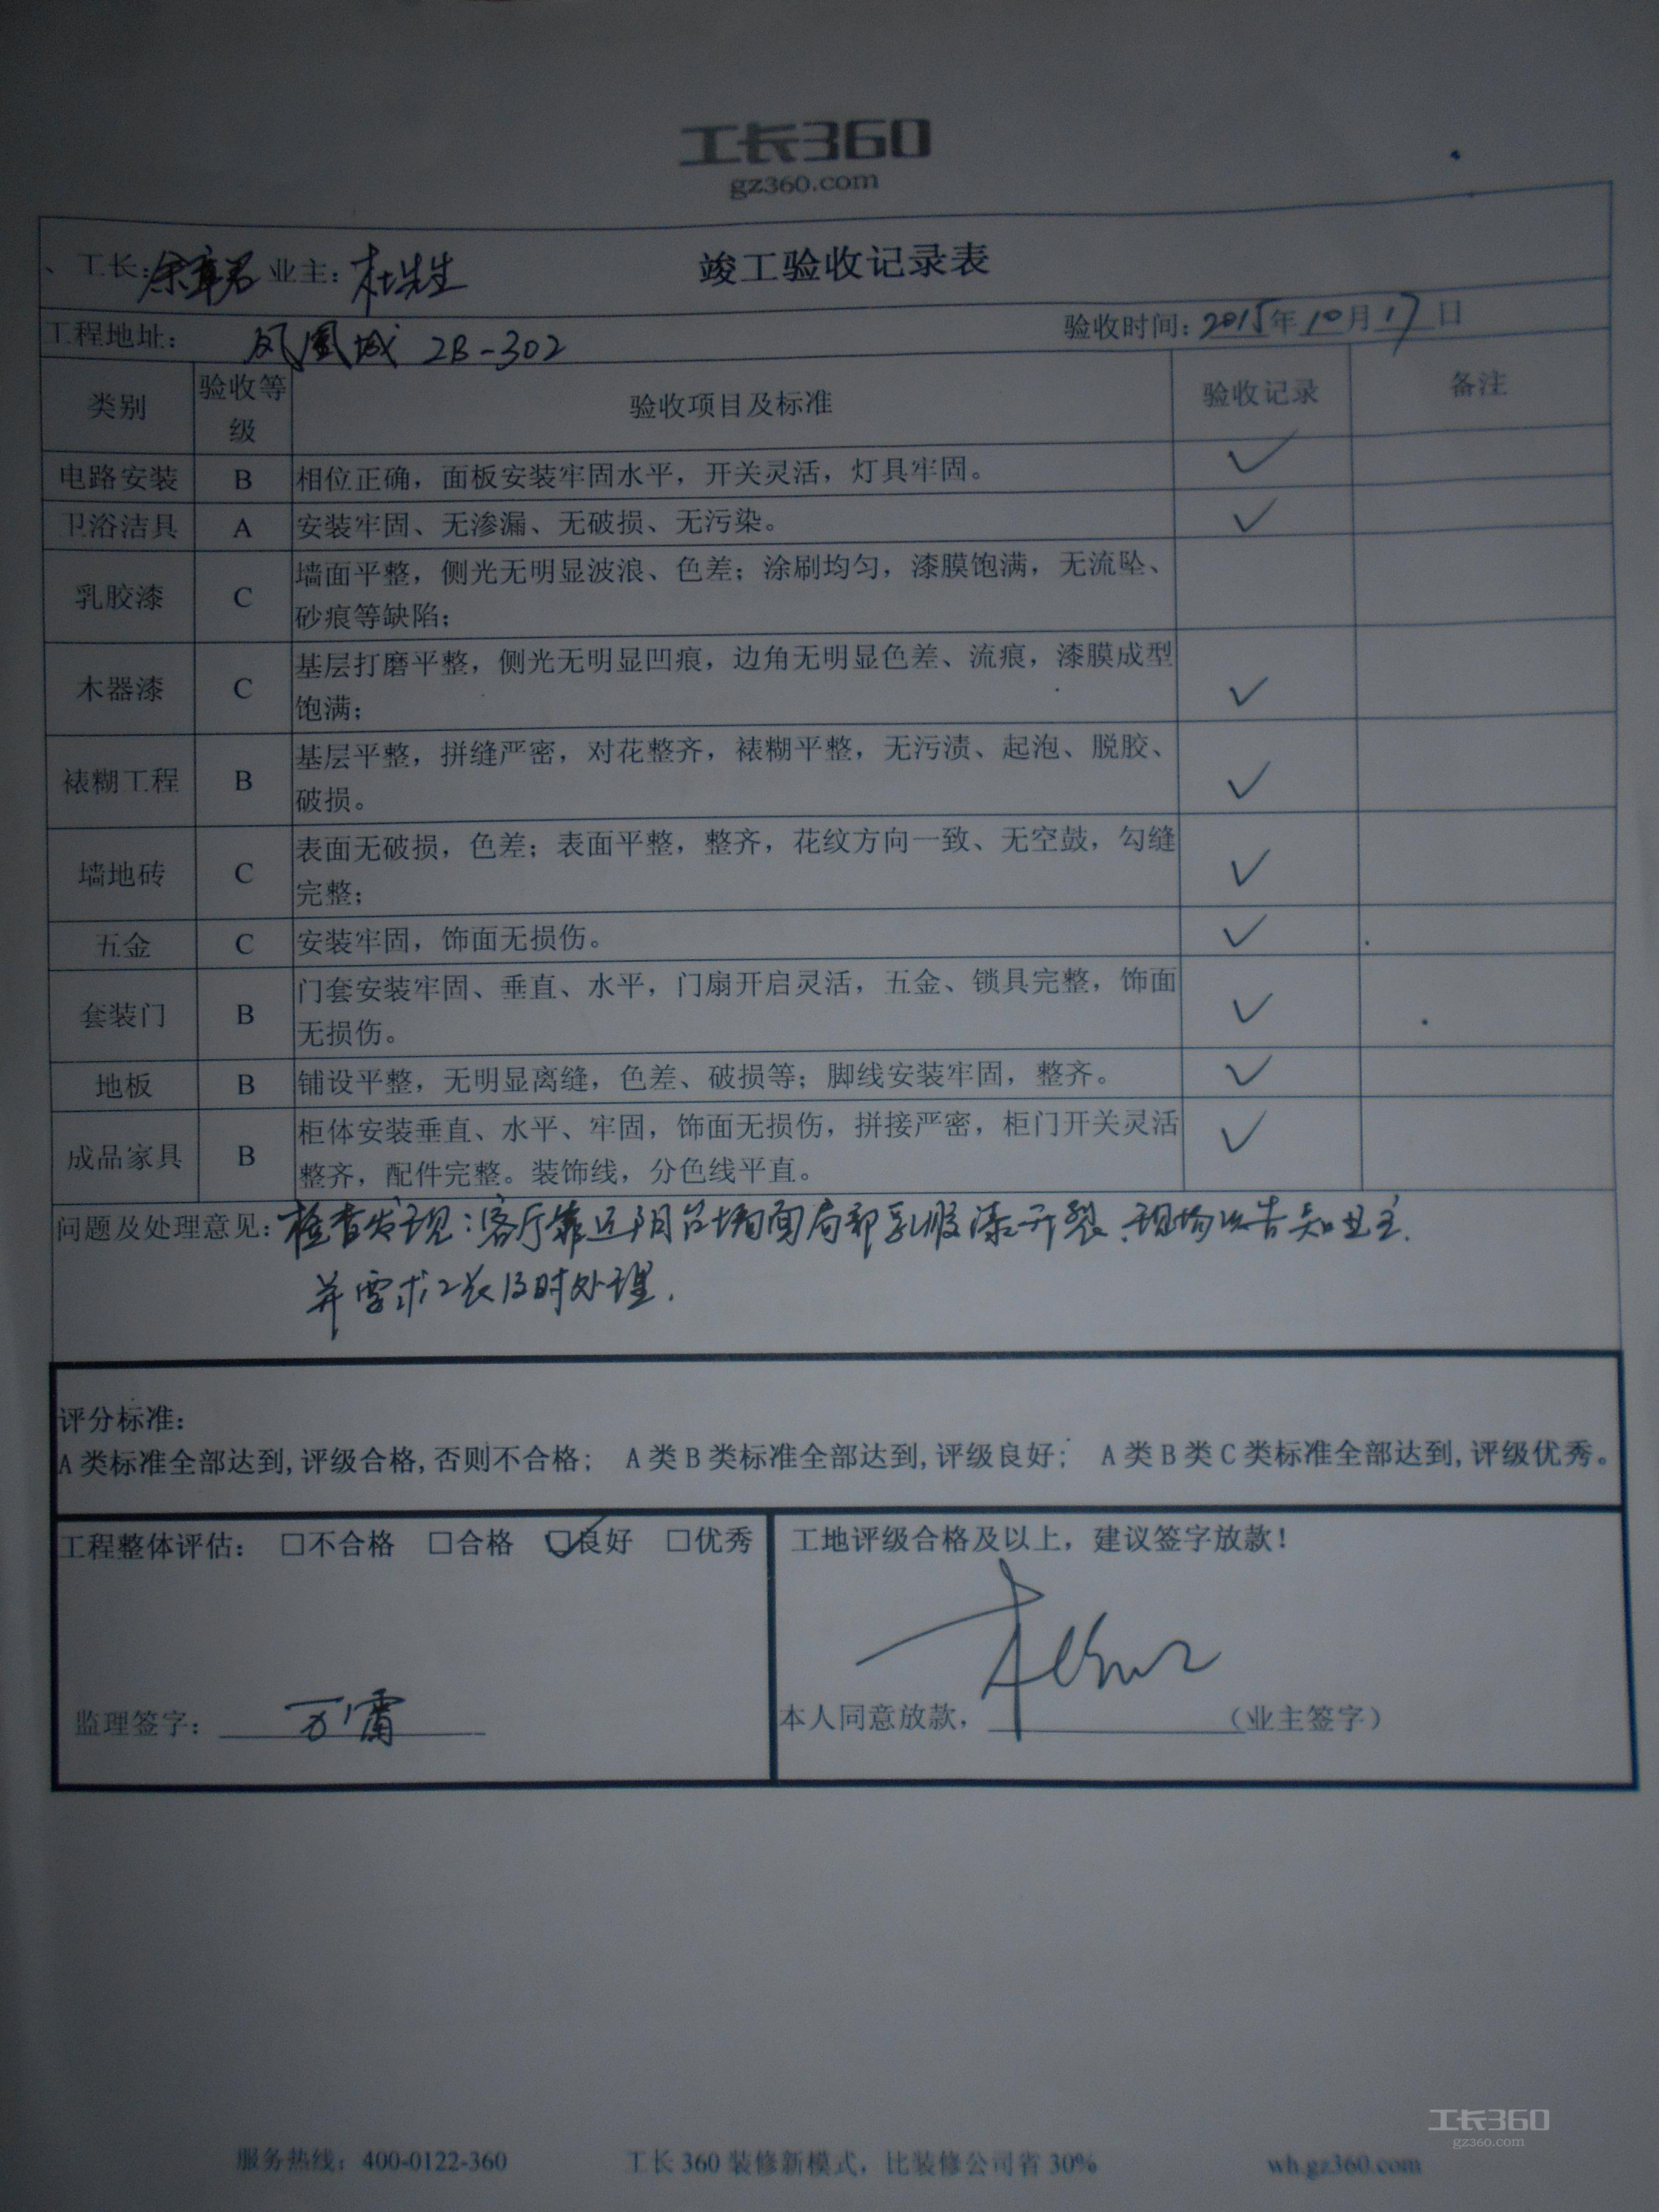 工长360
gz360.com
、工长:余章君 业主:杜先生 竣工验收记录表
工程地址: 凤凰城 2B-302 验收时间:2015年10月17日
类别 验收等级 验收项目及标准 验收记录 备注
电路安装 B 相位正确，面板安装牢固水平，开关灵活，灯具牢固。 ✓
卫浴洁具 A 安装牢固、无渗漏、无破损、无污染。 ✓
乳胶漆 C 墙面平整，侧光无明显波浪、色差；涂刷均匀，漆膜饱满，无流坠、
砂痕等缺陷；
木器漆 C 基层打磨平整，侧光无明显凹痕，边角无明显色差、流痕，漆膜成型
饱满； ✓
裱糊工程 B 基层平整，拼缝严密，对花整齐，裱糊平整，无污渍、起泡、脱胶、
破损。 ✓
墙地砖 C 表面无破损，色差；表面平整，整齐，花纹方向一致、无空鼓，勾缝
完整； ✓
五金 C 安装牢固，饰面无损伤。 ✓
套装门 B 门套安装牢固、垂直、水平，门扇开启灵活，五金、锁具完整，饰面
无损伤。 ✓
地板 B 铺设平整，无明显离缝，色差、破损等；脚线安装牢固，整齐。 ✓
成品家具 B 柜体安装垂直、水平、牢固，饰面无损伤，拼接严密，柜门开关灵活
整齐，配件完整。装饰线，分色线平直。 ✓
问题及处理意见: 检查发现:客厅靠近阳台墙面局部乳胶漆开裂、现场以告知业主.
并要求工长及时处理.
评分标准:
A类标准全部达到,评级合格,否则不合格; A类B类标准全部达到,评级良好; A类B类C类标准全部达到,评级优秀。
工程整体评估: □不合格 □合格 ☑良好 □优秀 工地评级合格及以上，建议签字放款！
监理签字: 万雷 本人同意放款， （业主签字）
工长360
gz360.com
服务热线：400-0122-360 工长360装修新模式，比装修公司省30% wh.gz360.com